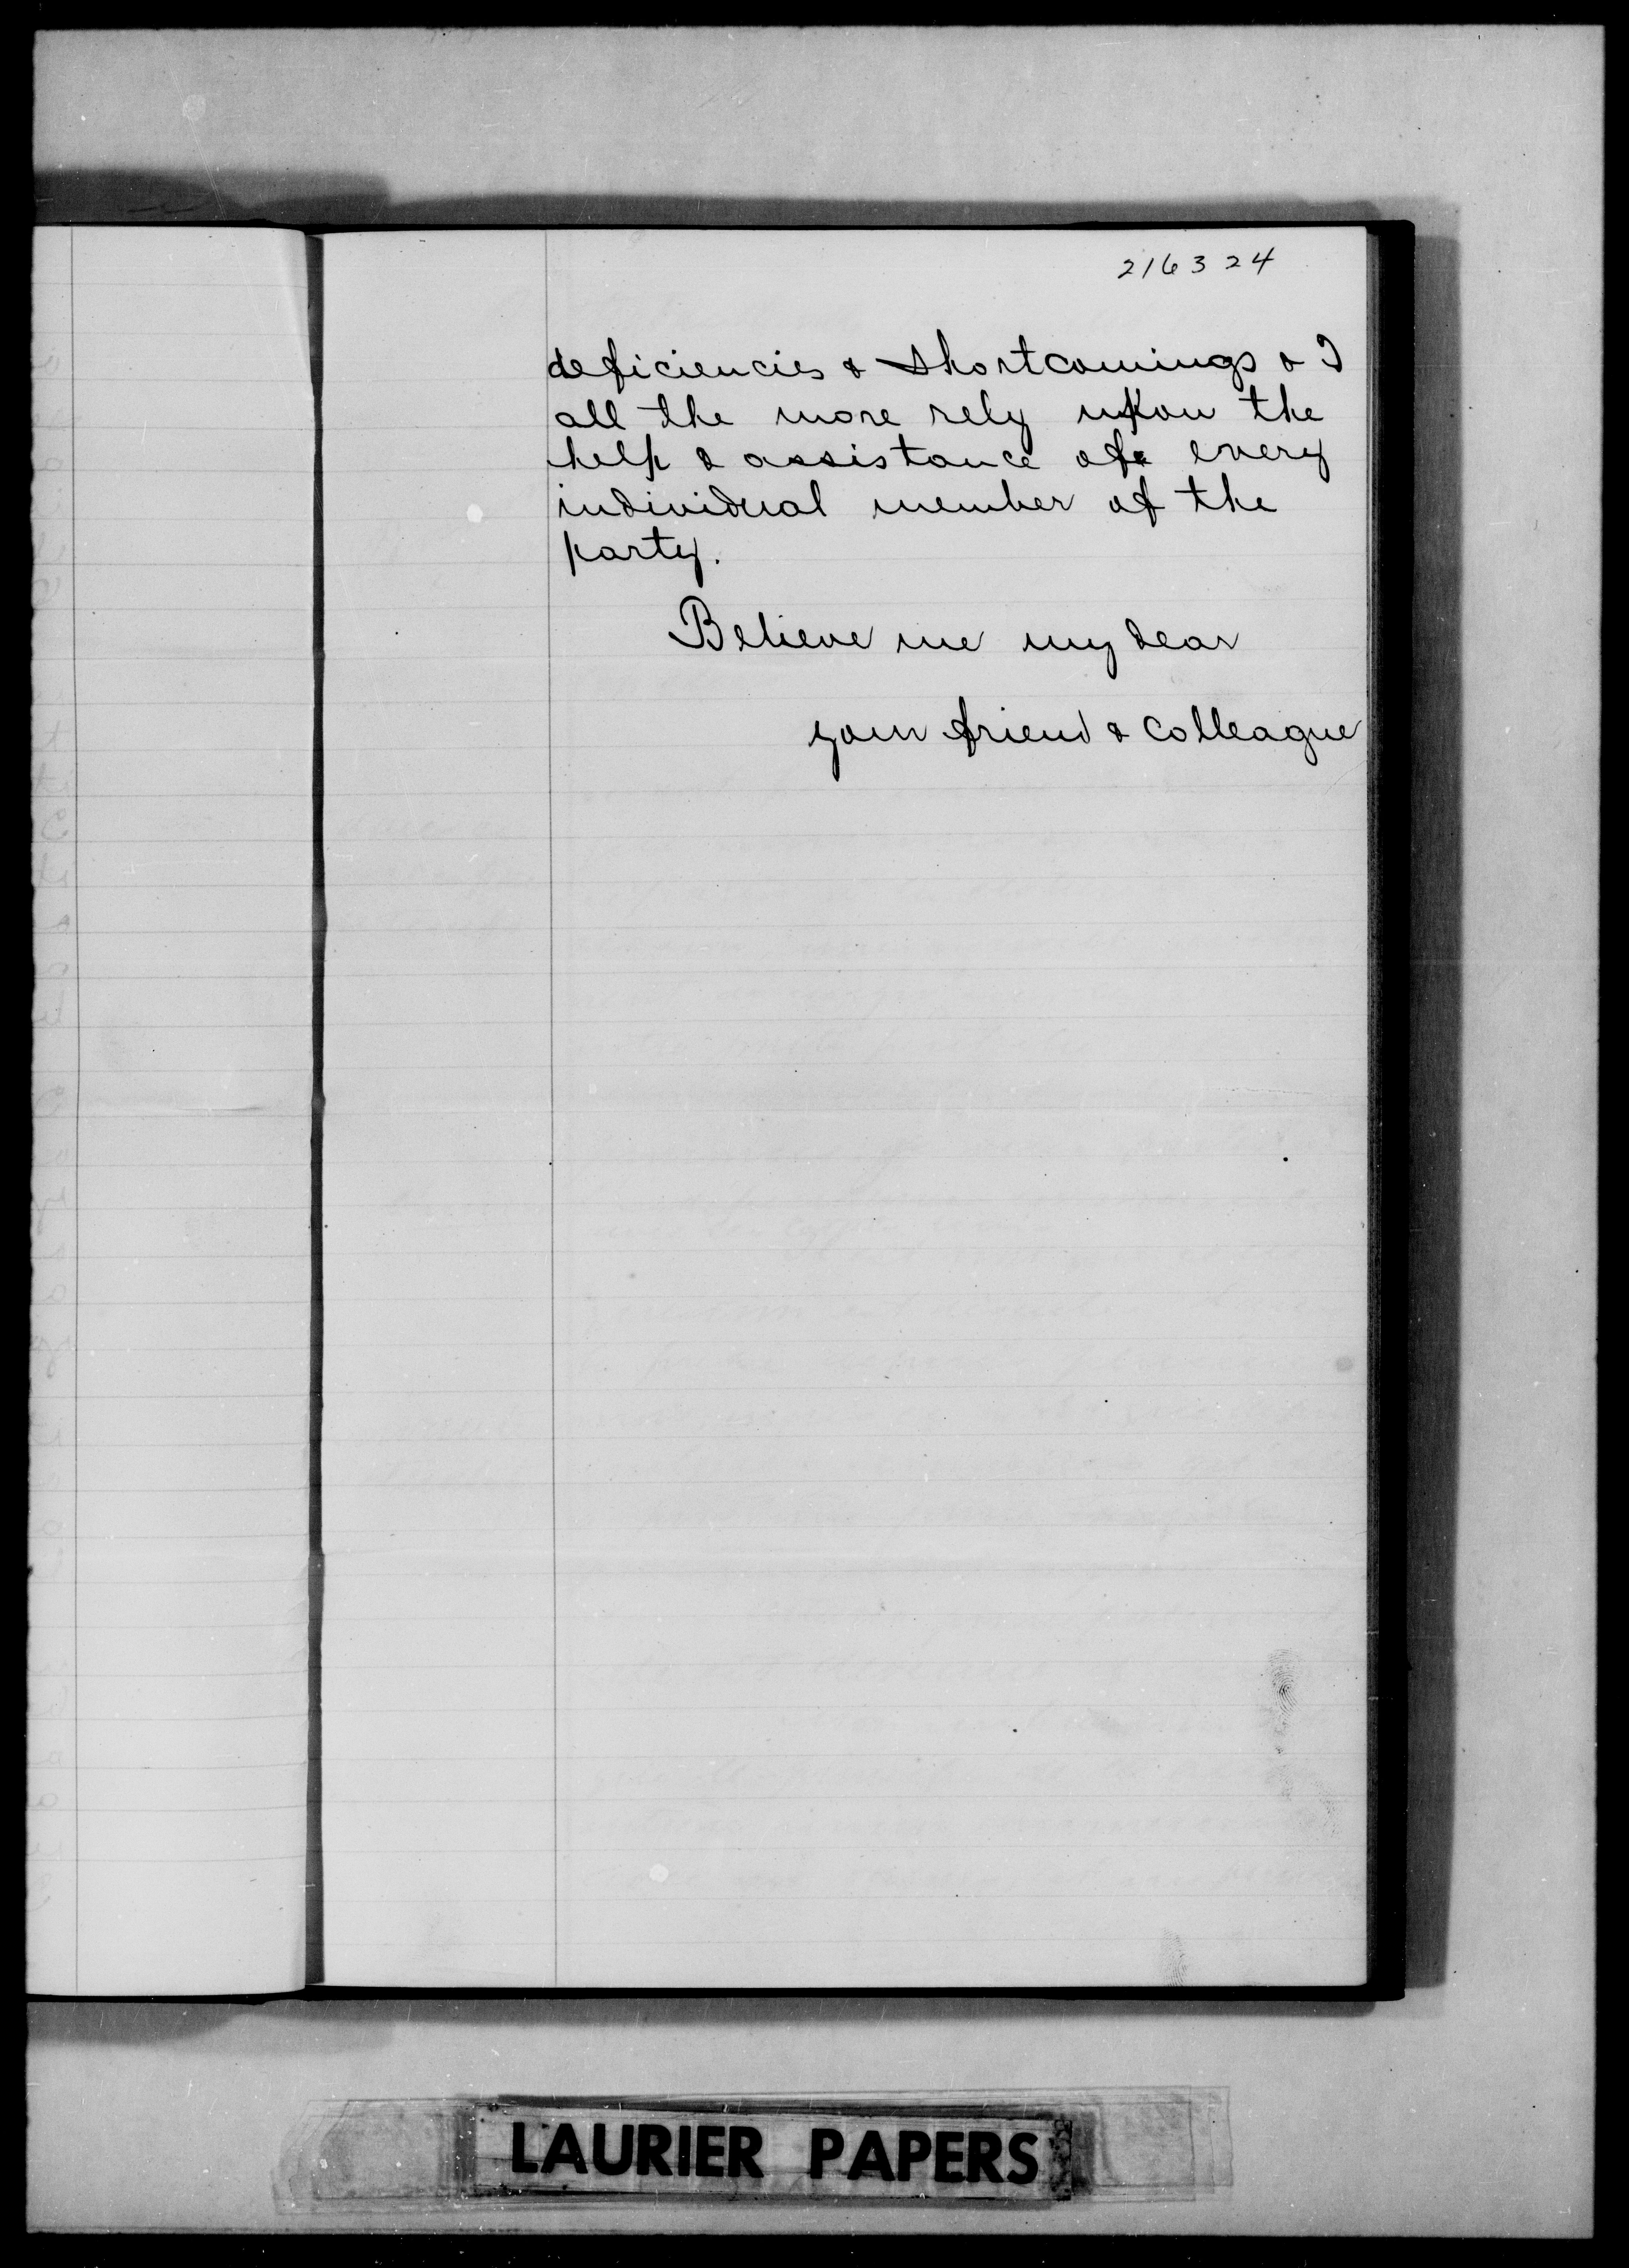 216324
deficiencies & shortcomings & I
all the more rely upon the
help & assistance of every
individual member of the
party.
Believe me my dear
your friend & colleague
LAURIER PAPERS